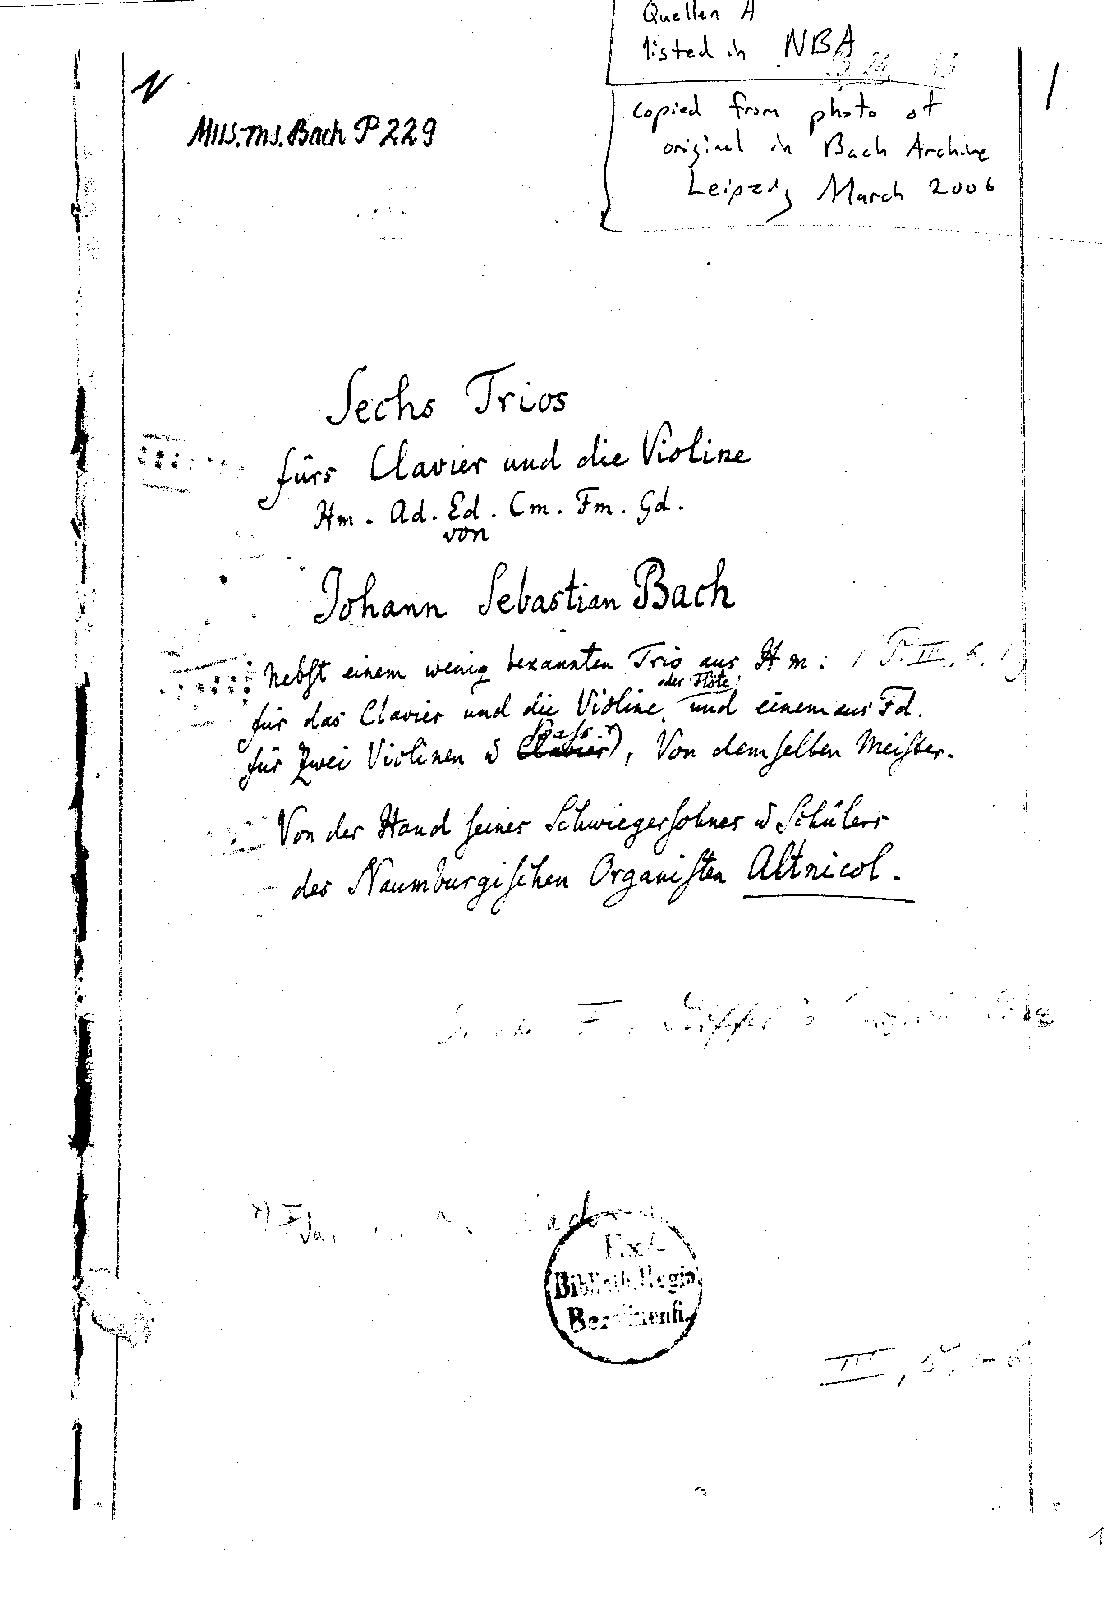 Quellen A
listed in NBA
copied from photo of
original in Bach Archive
Leipzig March 2006
Mus. ms. Bach P 229
Sechs Trios
fürs Clavier und die Violine
Hm. Ad. Ed. Cm. Fm. Gd.
von
Johann Sebastian Bach
Nebst einem wenig bekannten Trio aus Hm:
oder Flöte
für das Clavier und die Violine, und einem aus Fd.
Bass
für Zwei Violinen u Clavier), Von demselben Meister.
Von der Hand seines Schwiegersohnes u Schülers
des Naumburgischen Organisten Altnicol.
Ex
Biblioth. Regia
Berolinensi.
III,
1